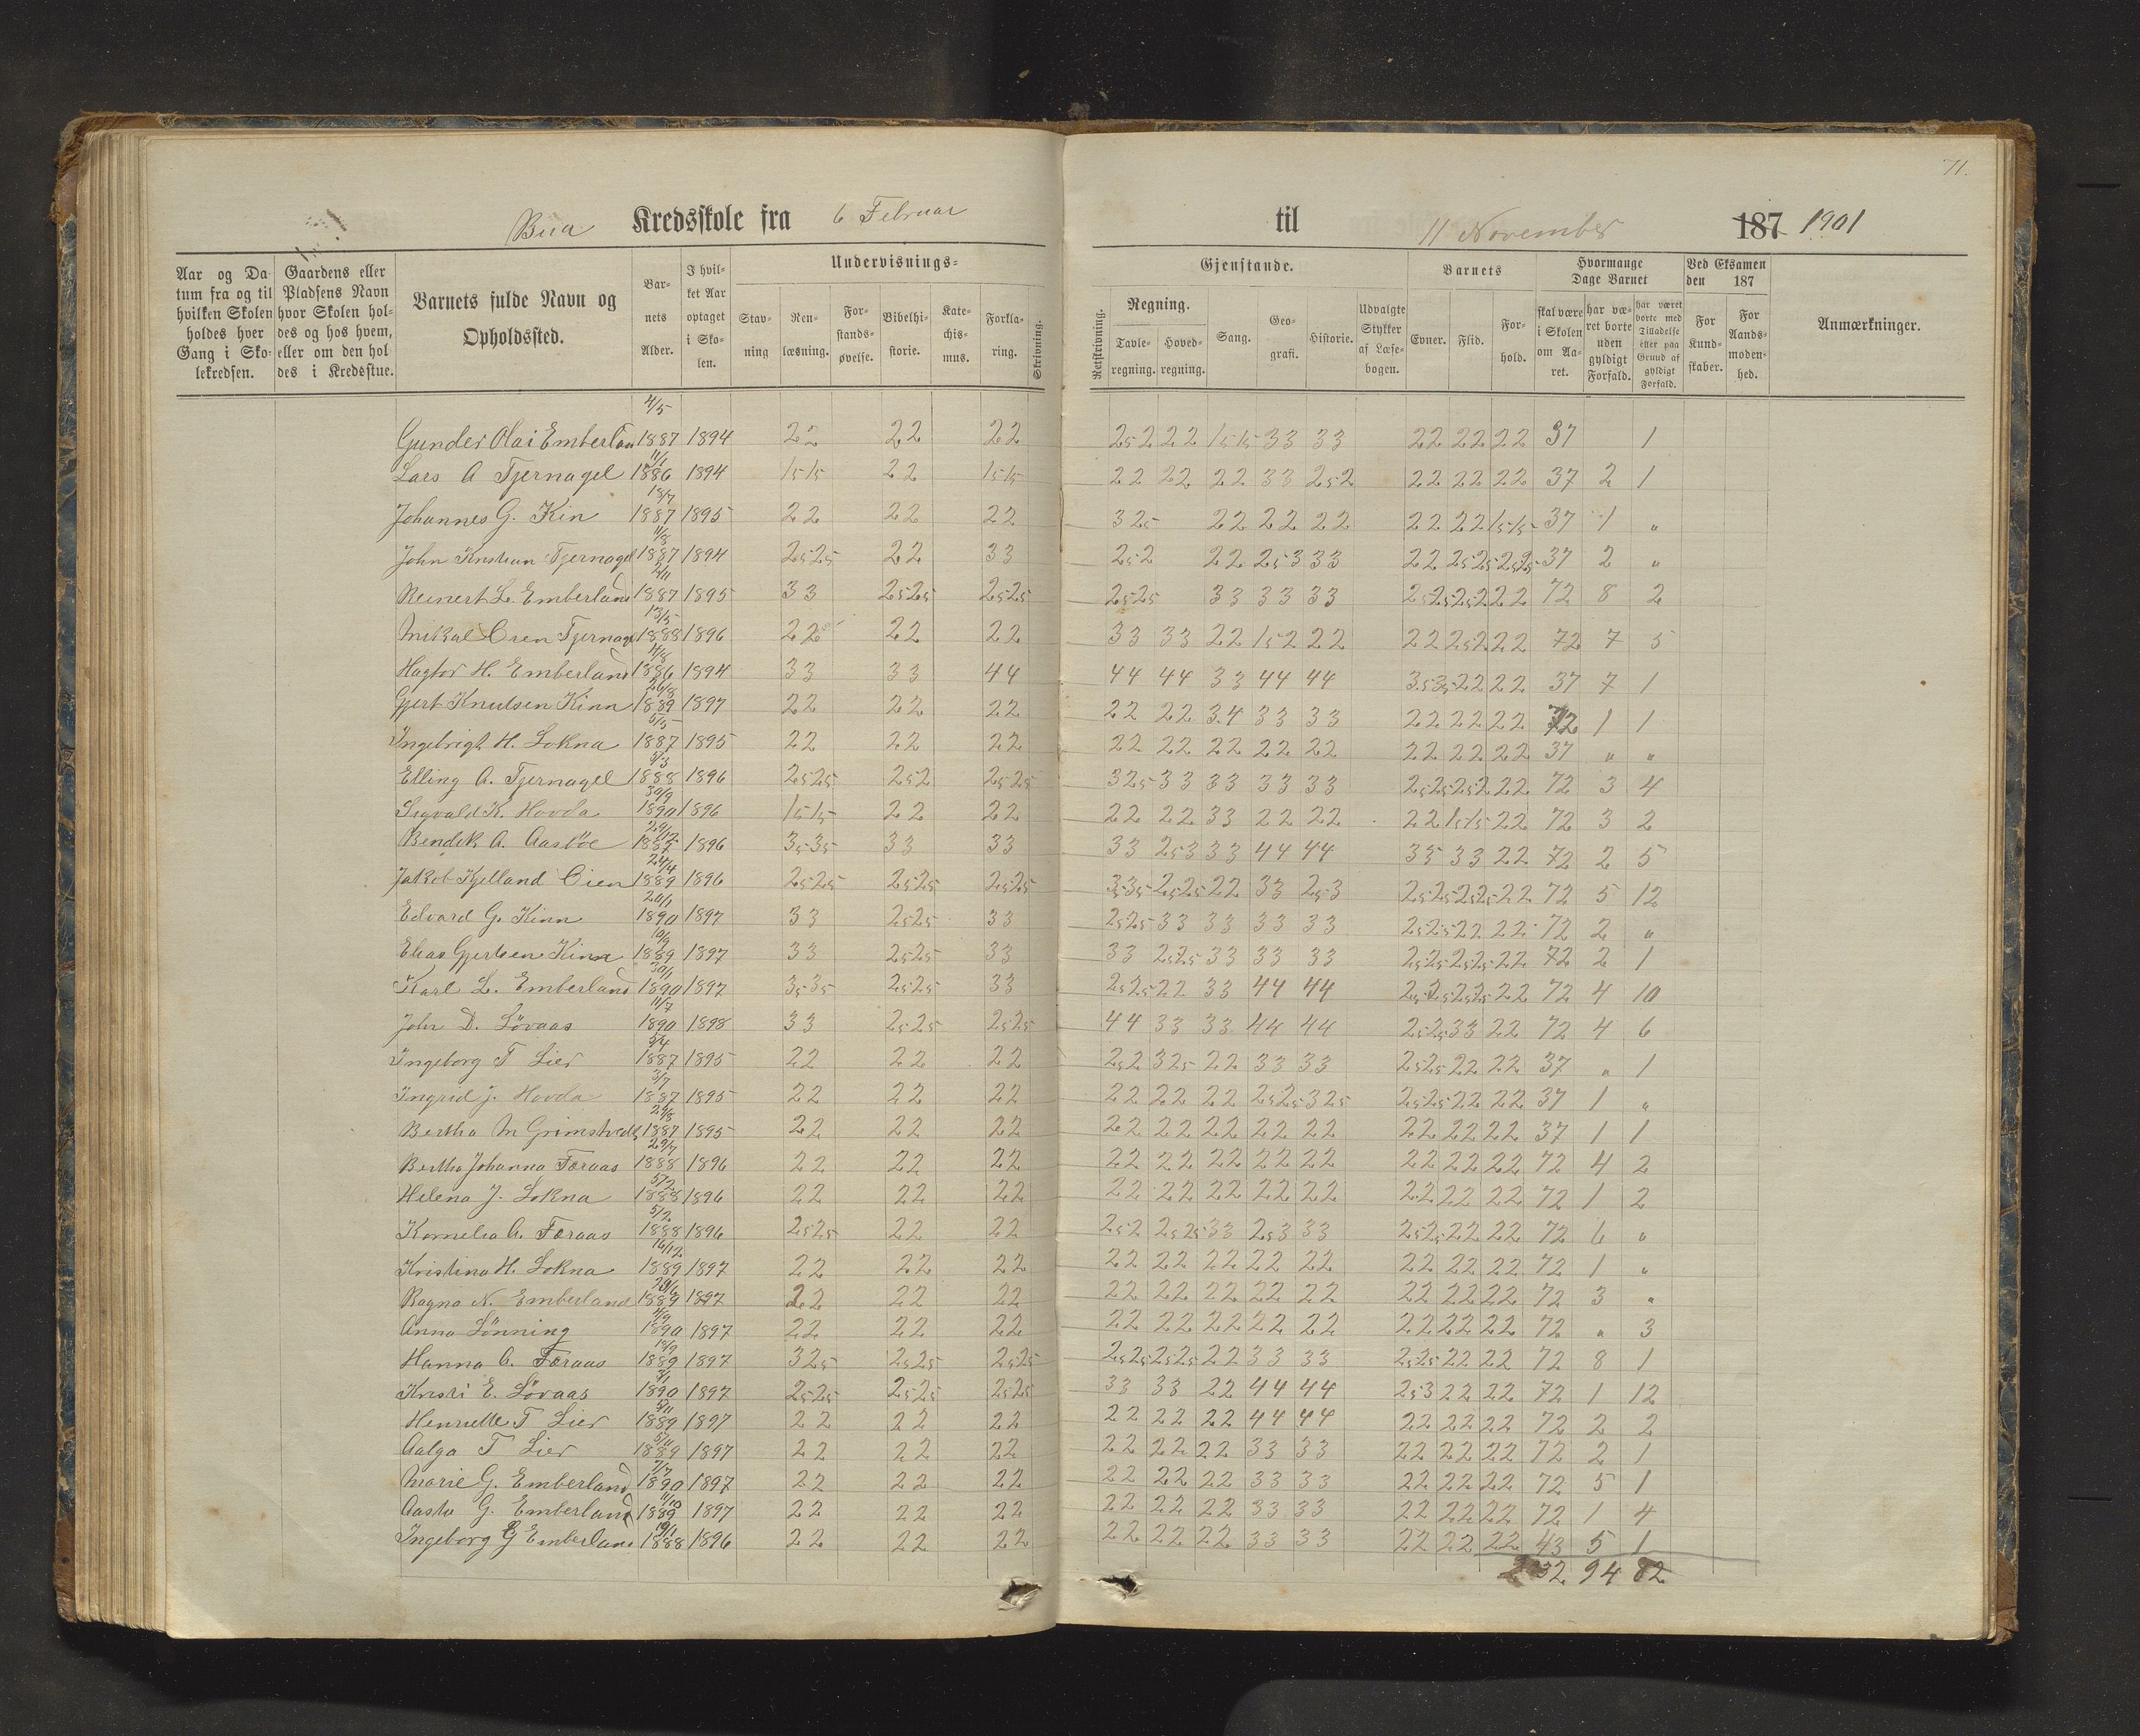 71.
Bua Kredsskole fra 6 Februar til 11 November 187 1901
Aar og Datum fra og til hvilken Skolen holdes hver Gang i Skolekredsen.
Gaardens eller Pladsens Navn hvor Skolen holdes og hos hvem, eller om den holdes i Kredsstue.
Barnets fulde Navn og Opholdssted.
Barnets Alder.
I hvilket Aar optaget i Skolen.
Undervisnings-Gjenstande.
Stavning
Renlæsning.
Forstandsøvelse.
Bibelhistorie.
Katechismus.
Forklaring.
Skrivning.
Retskrivning.
Regning.
Tavleregning.
Hovedregning.
Sang.
Geografi.
Historie.
Udvalgte Stykker af Læsebogen.
Barnets
Evner.
Flid.
Forhold.
Hvormange Dage Barnet
skal være i Skolen om Aaret.
har været borte uden gyldigt Forfald.
har været borte med Tilladelse eller paa Grund af gyldigt Forfald.
Ved Eksamen den 187
For Kundskaber.
For Aandsmodenhed.
Anmærkninger.
Gunder Olai Emberlan 4/5 1887 1894 22 22 22 252 22 1515 33 33 22 22 22 37 1
Lars A Tjernagel 1886 1894 1515 22 1515 22 22 22 33 252 22 22 22 37 2 1
Johannes G. Kin 18/7 1887 1895 22 22 22 325 22 22 22 22 22 1515 37 1 "
John Kristian Tjernagel 11/8 1887 1894 2525 22 33 252 22 253 33 22 2525 2525 37 2 "
Reinert L. Emberland 1887 1895 33 2525 2525 2525 33 33 33 2525 252 22 72 8 2
Mikal Oien Tjernagel 13/5 1888 1896 22 22 22 33 33 22 152 22 22 252 22 72 7 5
Hagtor H. Emberland 1886 1894 33 33 44 44 44 33 44 44 3535 22 22 37 7 1
Gjert Knutsen Kinn 26/8 1889 1897 22 22 22 22 22 3.4 33 33 22 22 22 72 1 1
Ingebrigt H. Lokna 1887 1895 22 22 22 22 22 22 22 22 22 22 22 37 " "
Elling A. Tjernagel 1888 1896 2525 252 2525 325 33 33 33 33 2525 252 22 72 3 4
Sigvald K. Hovda 30/9 1890 1896 1515 22 22 22 22 33 22 22 22 1515 22 72 3 2
Bendik A. Aasböe 1887 1896 3535 33 33 33 253 33 44 44 33 33 22 72 2 5
Jakob Kjelland Oien 24/4 1889 1896 2525 2525 2525 3535 2525 22 33 253 2525 2525 22 72 5 12
Edvard G. Kinn 20/1 1890 1897 33 2525 33 2525 33 33 33 33 2525 22 22 72 2 "
Elias Gjertsen Kinn 10/9 1889 1897 33 2525 33 33 2525 33 33 33 2525 2525 22 72 2 1
Karl L. Emberland 30/1 1890 1897 3535 2525 33 2525 22 33 44 44 2525 2525 22 72 4 10
John D. Lövaas 11/7 1890 1898 33 2525 2525 44 33 33 44 44 2525 33 22 72 4 6
Ingeborg T Lier 1887 1895 22 22 22 252 325 22 33 33 2525 22 22 37 " 1
Ingrid J. Hovda 3/7 1887 1895 22 22 22 22 22 22 2525 325 2525 22 22 37 1 "
Bertha M Grimstvedt 1887 1895 22 22 22 22 22 22 22 22 22 22 22 37 1 1
Bertha Johanna Foraas 29/7 1888 1896 22 22 22 22 22 22 22 22 22 22 22 72 4 2
Helena J. Lokna 5/2 1888 1896 22 22 22 22 22 22 22 22 22 22 22 72 1 2
Kornelia A. Foraas 5/2 1888 1896 2525 22 22 252 2525 33 253 33 2525 22 22 72 6 "
Kristina H. Lokna 16/12 1889 1897 22 22 22 22 22 22 22 22 22 22 22 72 1 "
Ragna N. Emberland 1889 1897 22 22 22 22 22 22 22 22 22 22 22 72 3 "
Anna Lönning 1890 1897 22 22 22 22 22 22 22 22 22 22 22 72 " 3
Hanna A. Foraas 1889 1897 325 2525 2525 2525 2525 22 33 33 2525 22 22 72 8 1
Kristi E. Lövaas 1890 1897 2525 2525 2525 33 33 22 44 44 253 22 22 72 1 12
Henriette T Lier 1889 1897 22 22 22 22 22 22 44 44 22 22 22 72 2 2
Aalga T Lier 5/11 1889 1897 22 22 22 22 22 22 33 33 22 22 22 72 2 1
Marie G. Emberland 7/7 1890 1897 22 22 22 22 22 22 33 33 22 22 22 72 5 1
Aasta G. Emberland 11/10 1889 1897 22 22 22 22 22 22 33 33 22 22 22 72 1 4
Ingeborg G Emberlan 19/1 1888 1896 22 22 22 22 22 22 33 33 22 22 22 43 5 1
32 94 82